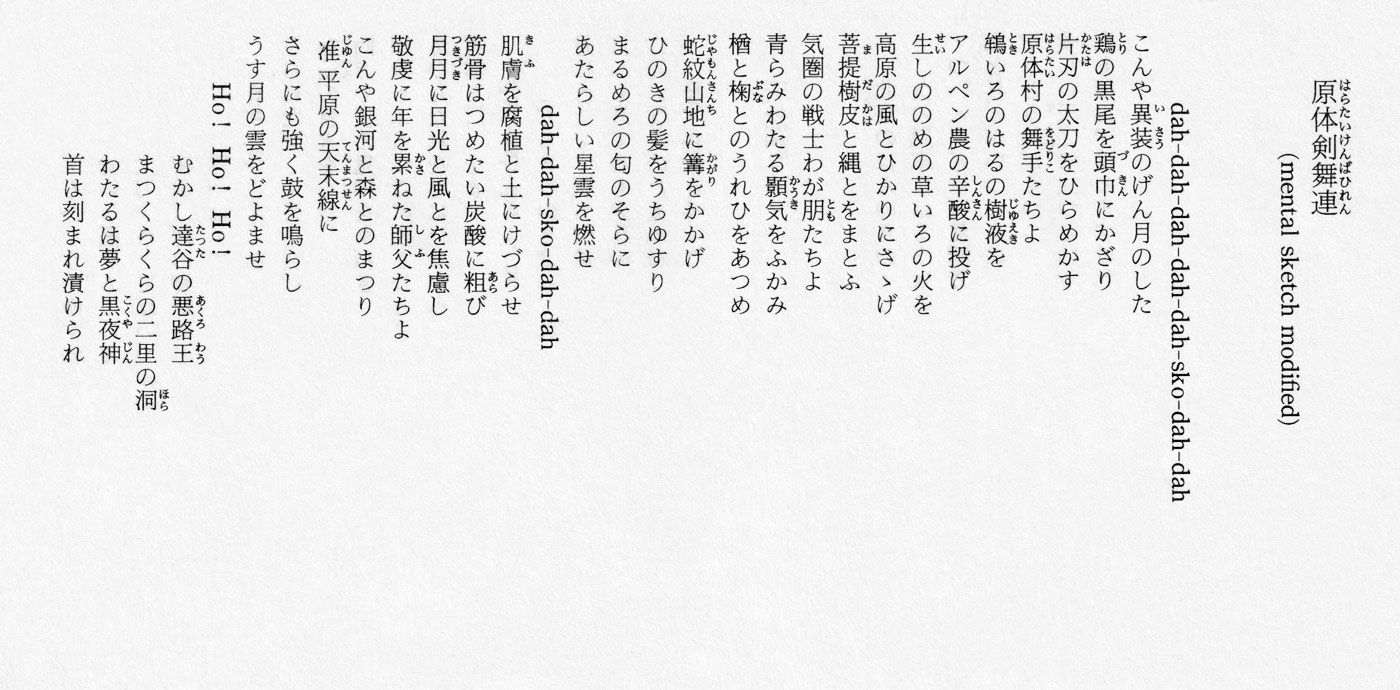 原体剣舞連
(mental sketch modified)
dah-dah-dah-dah-dah-sko-dah-dah
こんや異装のげん月のした
鶏の黒尾を頭巾にかざり
片刃の太刀をひらめかす
原体村の舞手たちよ
鴾いろのはるの樹液を
アルペン農の辛酸に投げ
生しののめの草いろの火を
高原の風とひかりにさゝげ
菩提樹皮と縄とをまとふ
気圏の戦士わが朋たちよ
青らみわたる顥気をふかみ
楢と椈とのうれひをあつめ
蛇紋山地に篝をかかげ
ひのきの髪をうちゆすり
まるめろの匂のそらに
あたらしい星雲を燃せ
dah-dah-sko-dah-dah
肌膚を腐植と土にけづらせ
筋骨はつめたい炭酸に粗び
月月に日光と風とを焦慮し
敬虔に年を累ねた師父たちよ
こんや銀河と森とのまつり
准平原の天末線に
さらにも強く鼓を鳴らし
うす月の雲をどよませ
Ho! Ho! Ho!
むかし達谷の悪路王
まつくらくらの二里の洞
わたるは夢と黒夜神
首は刻まれ漬けられ